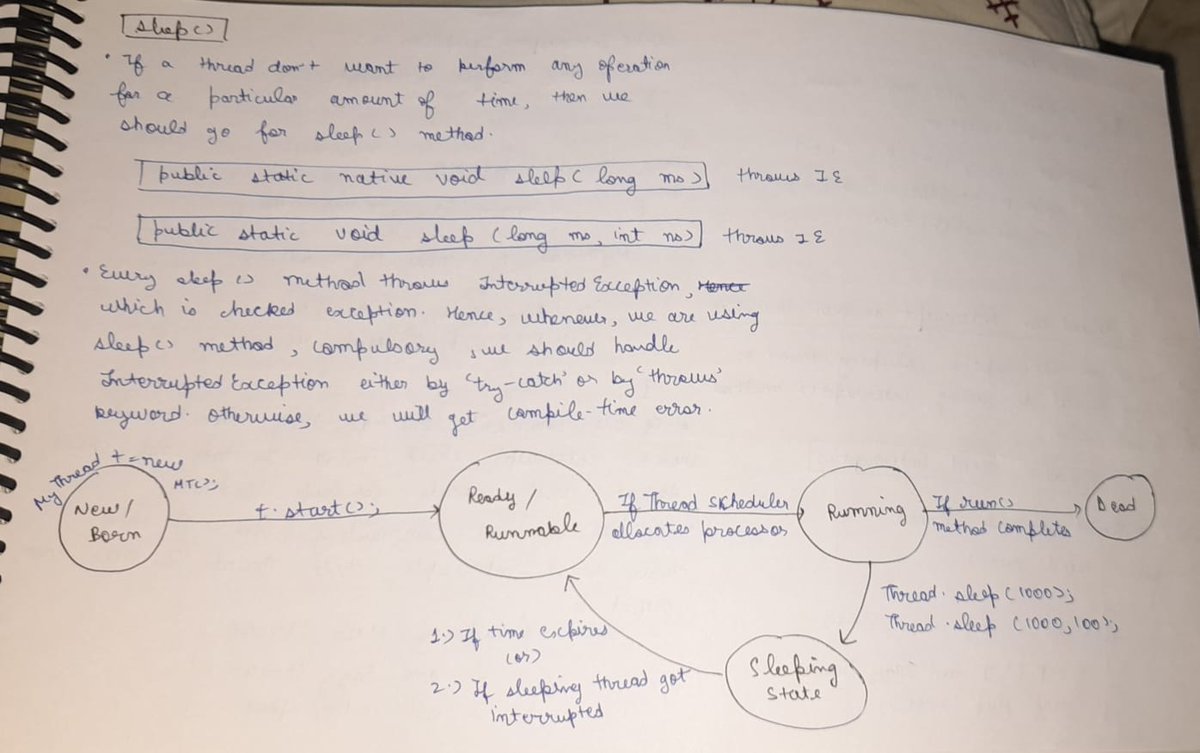 sleep()
• If a thread don't want to perform any operation
for a particular amount of time, then we
should go for sleep() method.
public static native void sleep(long ms) throws IE
public static void sleep(long ms, int ns) throws IE
• Every sleep() method throws Interrupted Exception, Hence
which is checked exception. Hence, whenever, we are using
sleep() method, compulsory, we should handle
Interrupted Exception either by 'try-catch' or by 'throws'
keyword. otherwise, we will get compile-time error.
My Thread t = new
MT();
New/
Born
t.start();
Ready/
Runnable
If Thread Skheduler
allocates processor
Running
If run()
method completes
Dead
Thread.sleep(1000);
Thread.sleep(1000,100);
Sleeping
State
1.) If time expires
(or)
2.) If sleeping thread got
interrupted